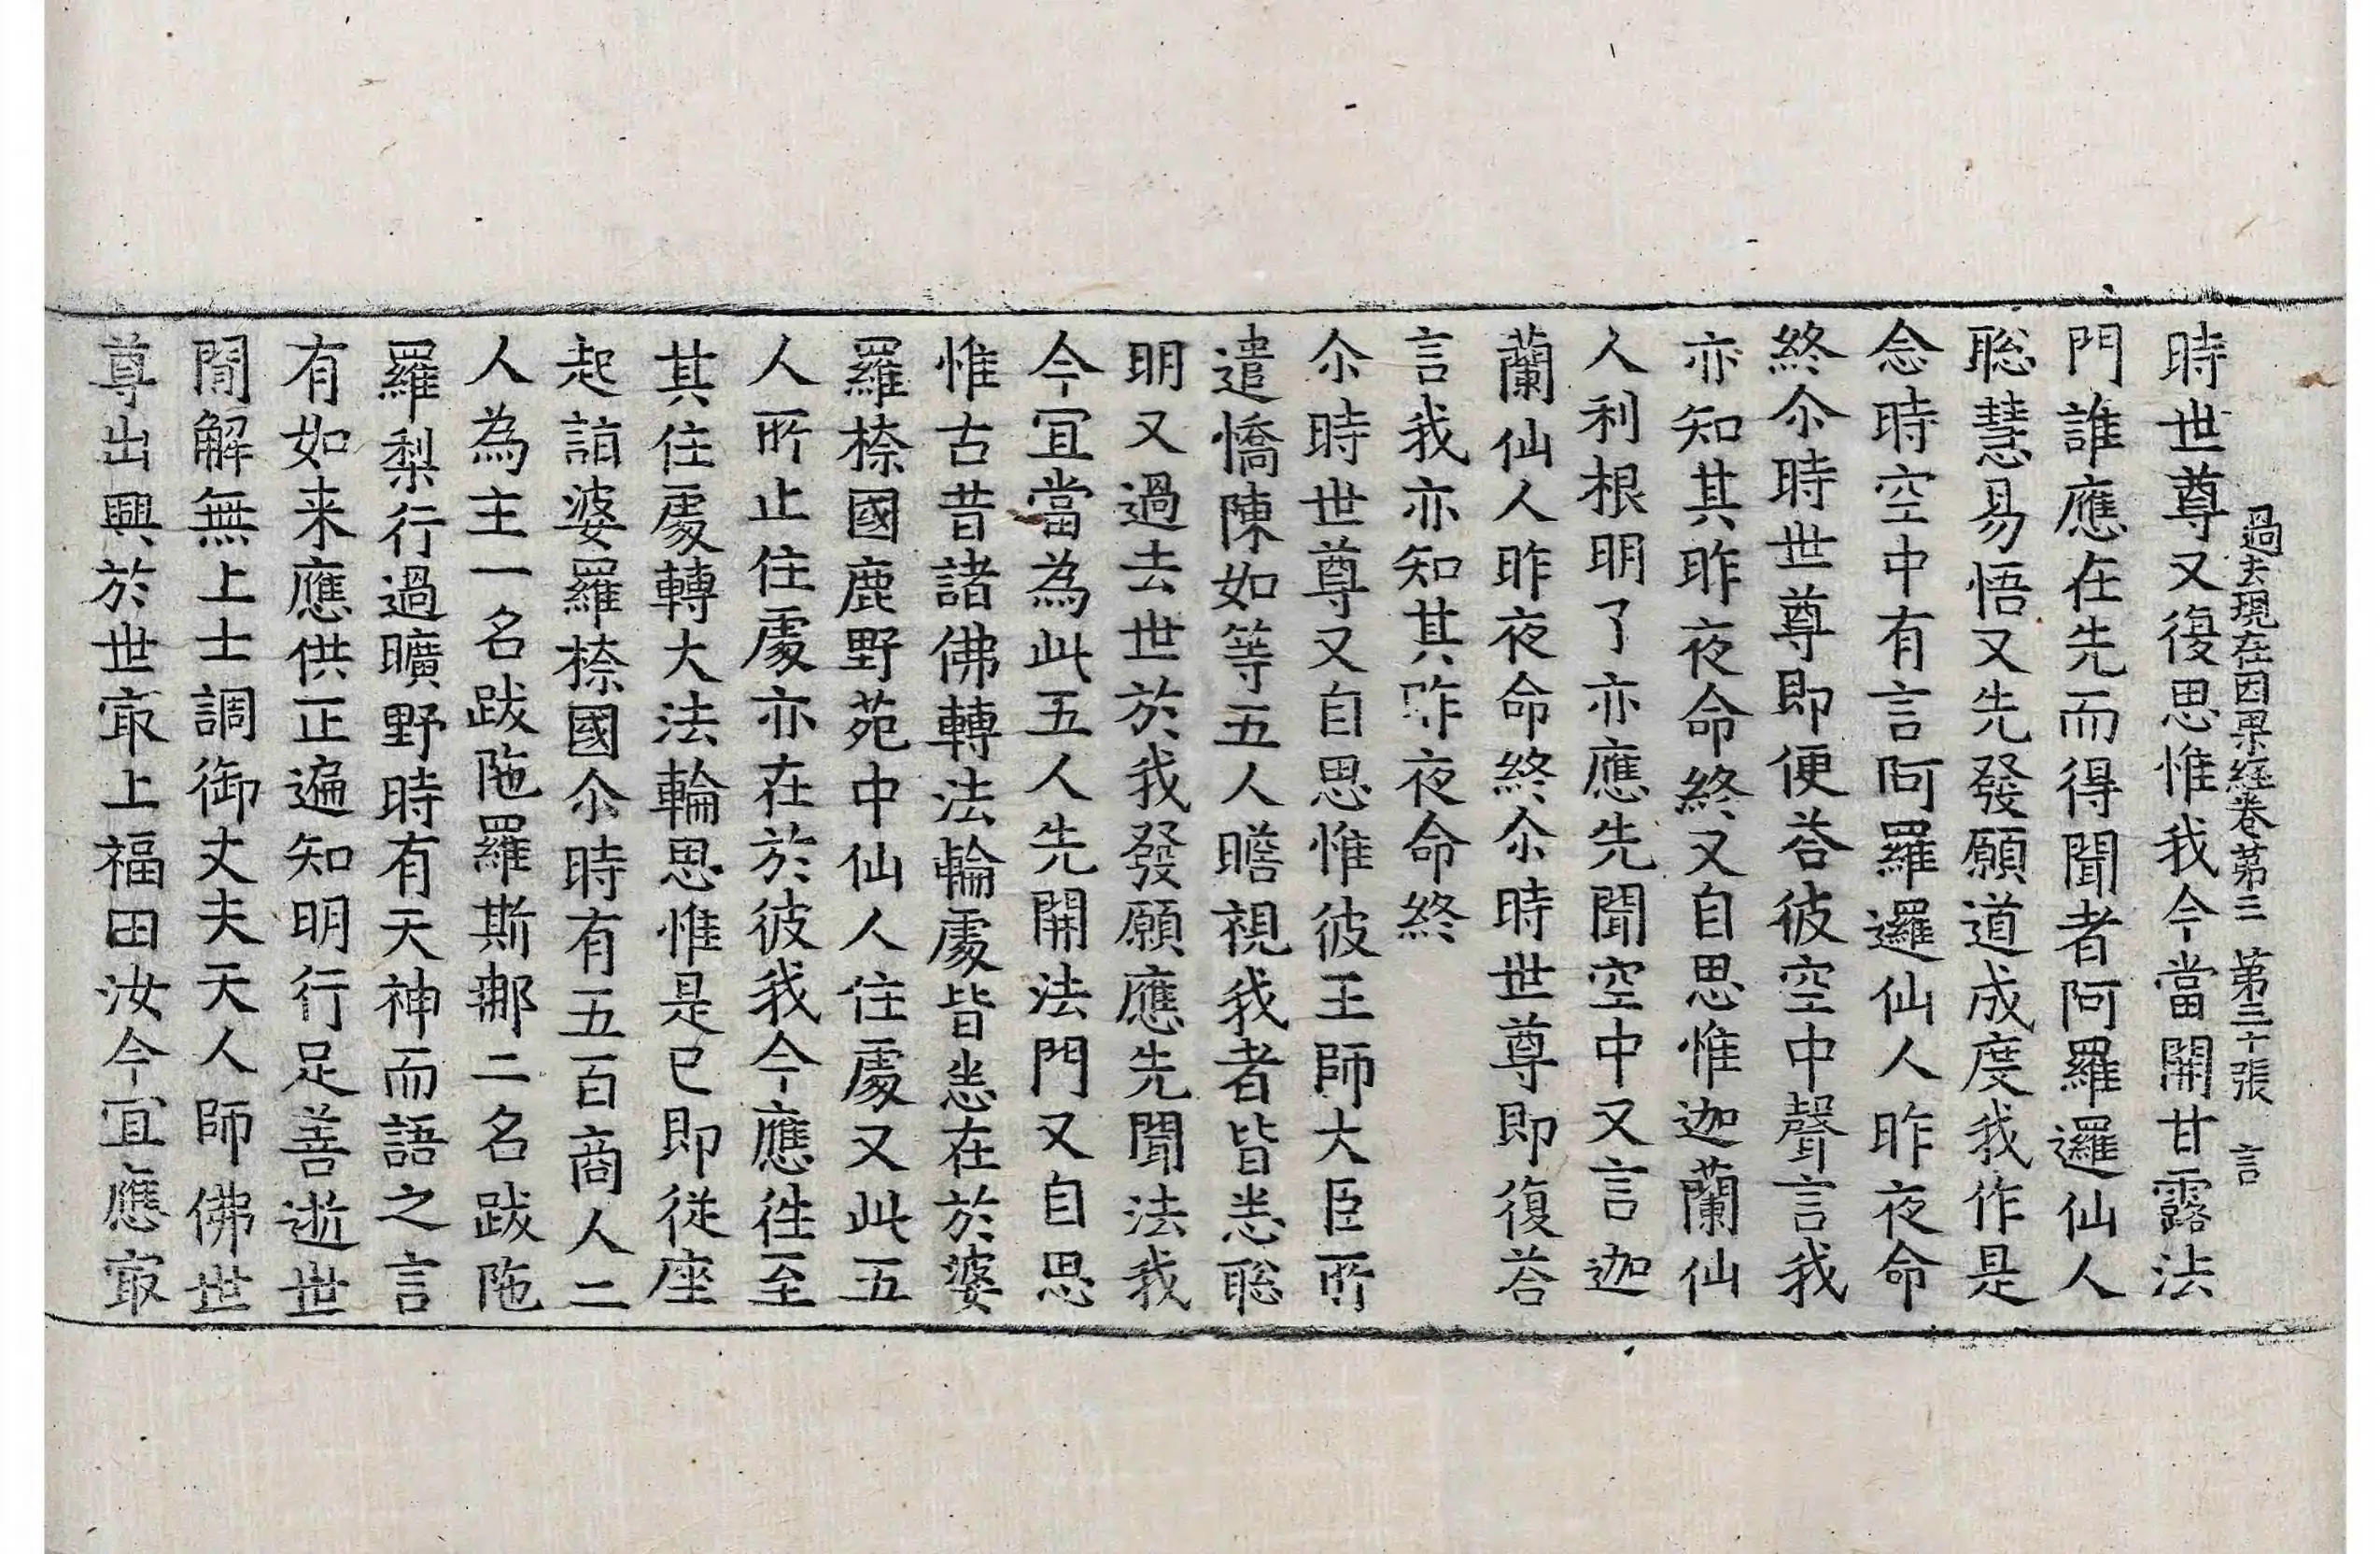 過去現在因果經卷第三 第三十張 言
時世尊又復思惟我今當開甘露法
門誰應在先而得聞者阿羅邏仙人
聡慧易悟又先發願道成度我作是
念時空中有言阿羅邏仙人昨夜命
終尒時世尊即便荅彼空中聲言我
亦知其昨夜命終又自思惟迦蘭仙
人利根明了亦應先聞空中又言迦
蘭仙人昨夜命終尒時世尊即復荅
言我亦知其昨夜命終
尒時世尊又自思惟彼王師大臣所
遣憍陳如等五人瞻視我者皆悉聡
明又過去世於我發願應先聞法我
今冝當為此五人先開法門又自思
惟古昔諸佛轉法輪處皆悉在於婆
羅㮈國鹿野苑中仙人住處又此五
人所止住處亦在於彼我今應徃至
其住處轉大法輪思惟是已即從座
起詣婆羅㮈國尒時有五百商人二
人為主一名跋陁羅斯那二名跋陁
羅梨行過曠野時有天神而語之言
有如来應供正遍知明行足善逝世
閒解無上士調御丈夫天人師佛世
尊出興於世㝡上福田汝今冝應㝡